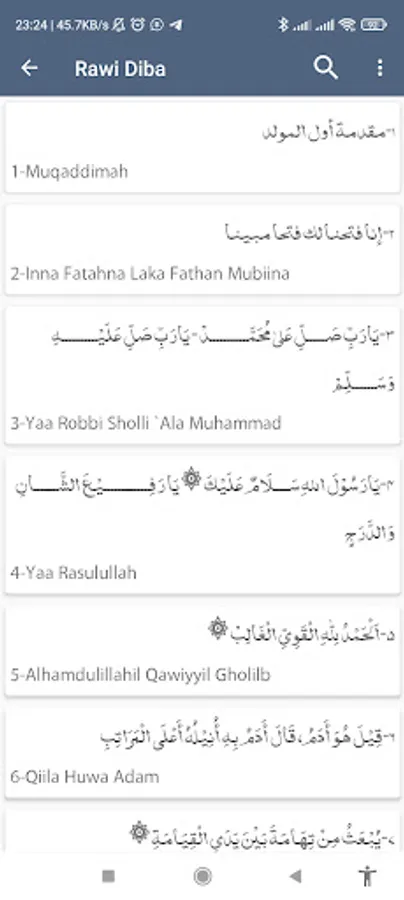 23:24 | 45.7KB/s
Rawi Diba
١-مقدمة أول المولد
1-Muqaddimah
٢-إنا فتحنا لك فتحا مبينا
2-Inna Fatahna Laka Fathan Mubiina
٣-يَارَبِّ صَلِّ عَلىٰ مُحَمَّدْ-يَارَبِّ صَلِّ عَلَيْهِ
وَسَلِّمْ
3-Yaa Robbi Sholli `Ala Muhammad
۴-يَارَسُوْلَ اللهِ سَلَامٌ عَلَيْكَ ۞ يَارَفِيْعَ الشَّانِ
وَالدَّرَجِ
4-Yaa Rasulullah
۵-اَلْحَمْدُ لِلّٰهِ الْقَوِيِّ الْغَالِبْ ۞
5-Alhamdulillahil Qawiyyil Gholilb
٦-قِيْلَ هُوَ أٰدَمُ، قَالَ أٰدَمُ بِهِ أُنِيْلُهُ أَعْلَى الْمَرَاتِبِ
6-Qiila Huwa Adam
٧-يُبْعَثُ مِنْ تِهَامَةَ بَيْنَ يَدَيِ الْقِيَامَةِ ۞